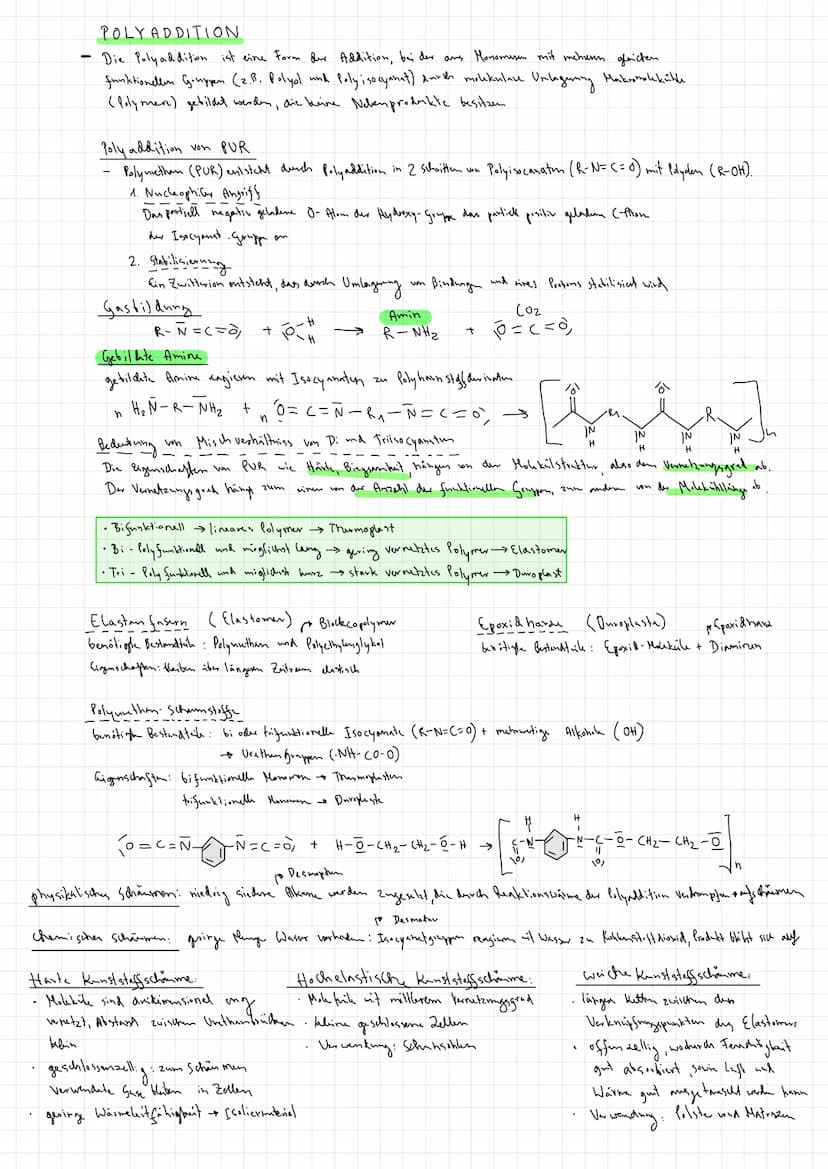 POLYADDITION
– Die Polyaddition ist eine Form der Addition, bei der aus Monomeren mit mehreren gleichen
funktionellen Gruppen (z.B. Polyol und Polyisocyanat) durch molekulare Umlagerung Makromoleküle
(Polymere) gebildet werden, die keine Nebenprodukte besitzen
Polyaddition von PUR
– Polyurethan (PUR) entsteht durch Polyaddition in 2 Schritten von Polyisocanaten (R-N=C=O) mit Polyolen (R-OH).
1. Nucleophiler Angriff
Das partiell negativ geladene O-Atom der Hydroxy-Gruppe das partiell positiv geladene C-Atom
der Isocyanat-Gruppe an
2. Stabilisierung
Ein Zwitterion entsteht, das durch Umlagerung von Bindungen und eines Protons stabilisiert wird
Gasbildung
Amin CO2
R-N=C=O + O-H H → R-NH2 + O=C=O
Gebildete Amine
gebildete Amine reagieren mit Isocyanaten zu Polyharnstoffderivaten
n H2N-R-NH2 + n O=C=N-R1-N=C=O → [ O R1 O R IN H IN H IN H IN H ]n
Bedeutung von Mischverhältniss von Di und Triisocyanaten
Die Eigenschaften von PUR wie Härte, Biegsamkeit, hängen von der Molekülstruktur, also dem Vernetzungsgrad ab.
Der Vernetzungsgrad hängt zum einen von der Anzahl der funktionellen Gruppen, zum anderen von der Moleküllänge ab.
· Bifunktionell → lineares Polymer → Thermoplast
· Bi - Polyfunktionell und möglichst lang → gering vernetztes Polymer → Elastomer
· Tri - Polyfunktionell und möglichst kurz → stark vernetztes Polymer → Duroplast
Elastanfasern (Elastomer) → Blockcopolymer
benötigte Bestandteile: Polyurethan und Polyethylenglykol
Eigenschaften: bleiben über längeren Zeitraum elastisch
Epoxidharze (Duroplaste) → Epoxidharze
benötigte Bestandteile: Epoxid-Moleküle + Diaminen
Polyurethan-Schaumstoffe
benötigte Bestandteile: bi oder trifunktionelle Isocyanate (R-N=C=O) + mehrwertige Alkohole (OH)
→ Urethangruppen (-NH-CO-O)
Eigenschaften: bifunktionelle Monomere → Thermoplasten
trifunktionelle Monomere → Duroplaste
O=C=N- -N=C=O + H-O-CH2-CH2-O-H → [ C-N- -N-C-O-CH2-CH2-O ]n
→ Desmophen
physikalisches Schäumen: niedrig siedene Alkane werden zugesetzt, die durch Reaktionswärme der Polyaddition verdampfen + aufschäumen
→ Desmodur
Chemisches Schäumen: geringe Menge Wasser vorhaden: Isocyanatgruppen reagieren mit Wasser zu Kohlenstoffdioxid, Produkt bläht sich auf
Harte Kunststoffschäume:
· Moleküle sind dreidimensional eng
vernetzt, Abstand zwischen Urethanbrücken
klein
· geschlossenzellig: zum Schäumen
verwendete Gase bleiben in Zellen
· geringe Wärmeleitfähigkeit → Isoliermaterial
Hochelastische Kunststoffschäume:
· Moleküle mit mittlerem Vernetzungsgrad
· kleine geschlossene Zellen
· Verwendung: Schuhsohlen
weiche Kunststoffschäume:
· längere Ketten zwischen den
Verknüpfungspunkten des Elastomers
· offenzellig, wodurch Feuchtigkeit
gut absorbiert, sowie Luft und
Wärme gut ausgetauscht werden kann
· Verwendung: Polster und Matrazen